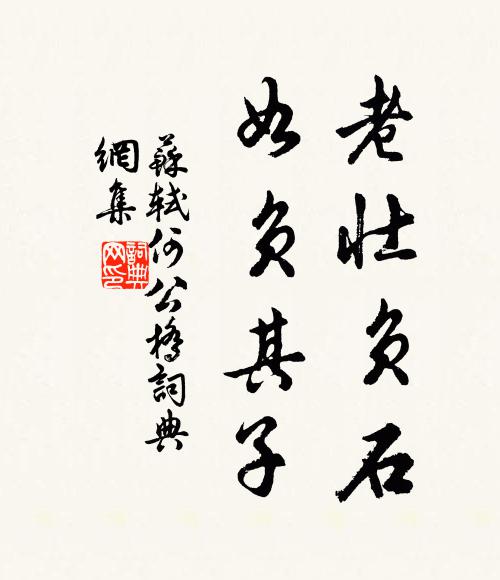 老壯負石
如負其子
蘇軾何公橋詞典
網集
詞典
网印